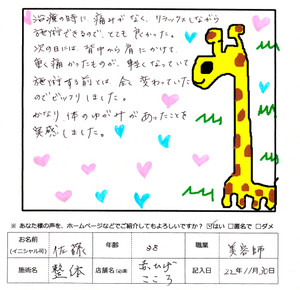 治療の時に痛みがなく、リラックスしながら
施術できるので、とても良かった。
次の日には、背中から肩にかけて
重く痛かったものが、軽くなっていて
施術する前とは、全く変わっていた
のでビックリしました。
かなり体のゆがみがあったことを
実感しました。
※ あなた様の声を、ホームページなどでご紹介してもよろしいですか？ ☑はい □匿名で □ダメ
お名前 (イニシャル可) 佐藤 年齢 38 職業 美容師
施術名 整体 店舗名(必須) 赤ひげこころ 記入日 22年11月30日